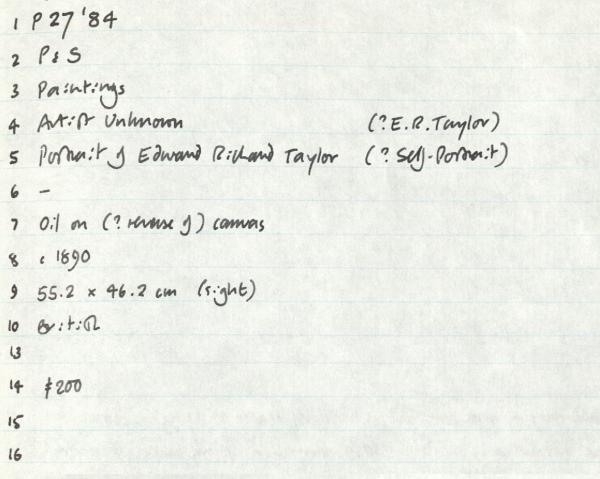 1 P 27 '84
2 P & S
3 Paintings
4 Artist Unknown (? E.R. Taylor)
5 Portrait of Edward Richard Taylor (? Self-Portrait)
6 –
7 Oil on (? reverse of) canvas
8 c 1890
9 55.2 × 46.2 cm (sight)
10 British
13
14 £200
15
16